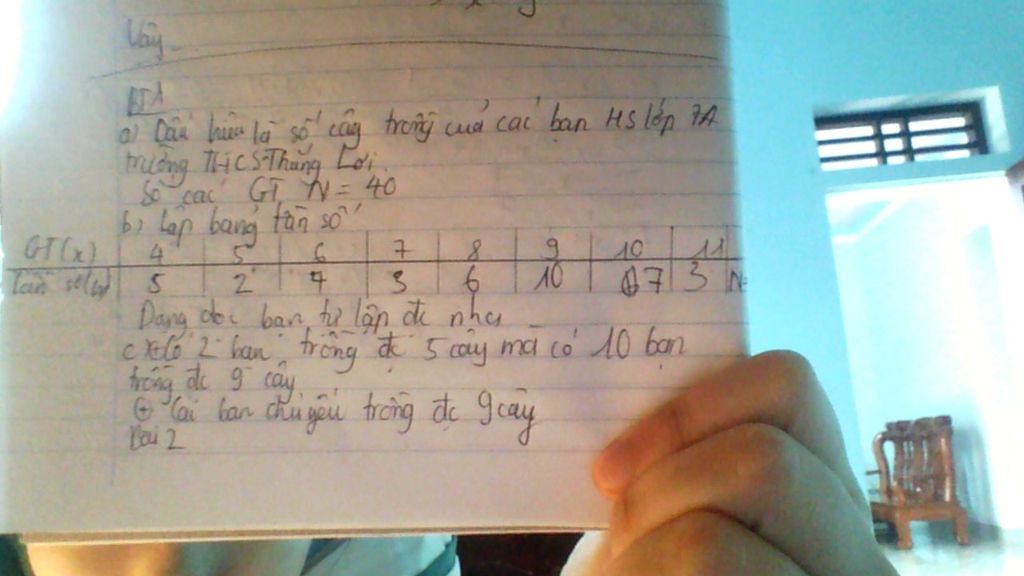 Vậy
BT1
a) Dấu hiệu là số cây trồng của các bạn HS lớp 7A
trường THCS Thắng Lợi.
Số các GT N = 40
b) Lập bảng tần số
GT(x) 4 5 6 7 8 9 10 11
Tần số(n) 5 2 4 3 6 10 7 3 N
Dạng dọc bạn tự lập đc nha
c) Có 2 bạn trồng đc 5 cây mà có 10 bạn
trồng đc 9 cây
⊕ Các bạn chủ yếu trồng đc 9 cây
Bài 2